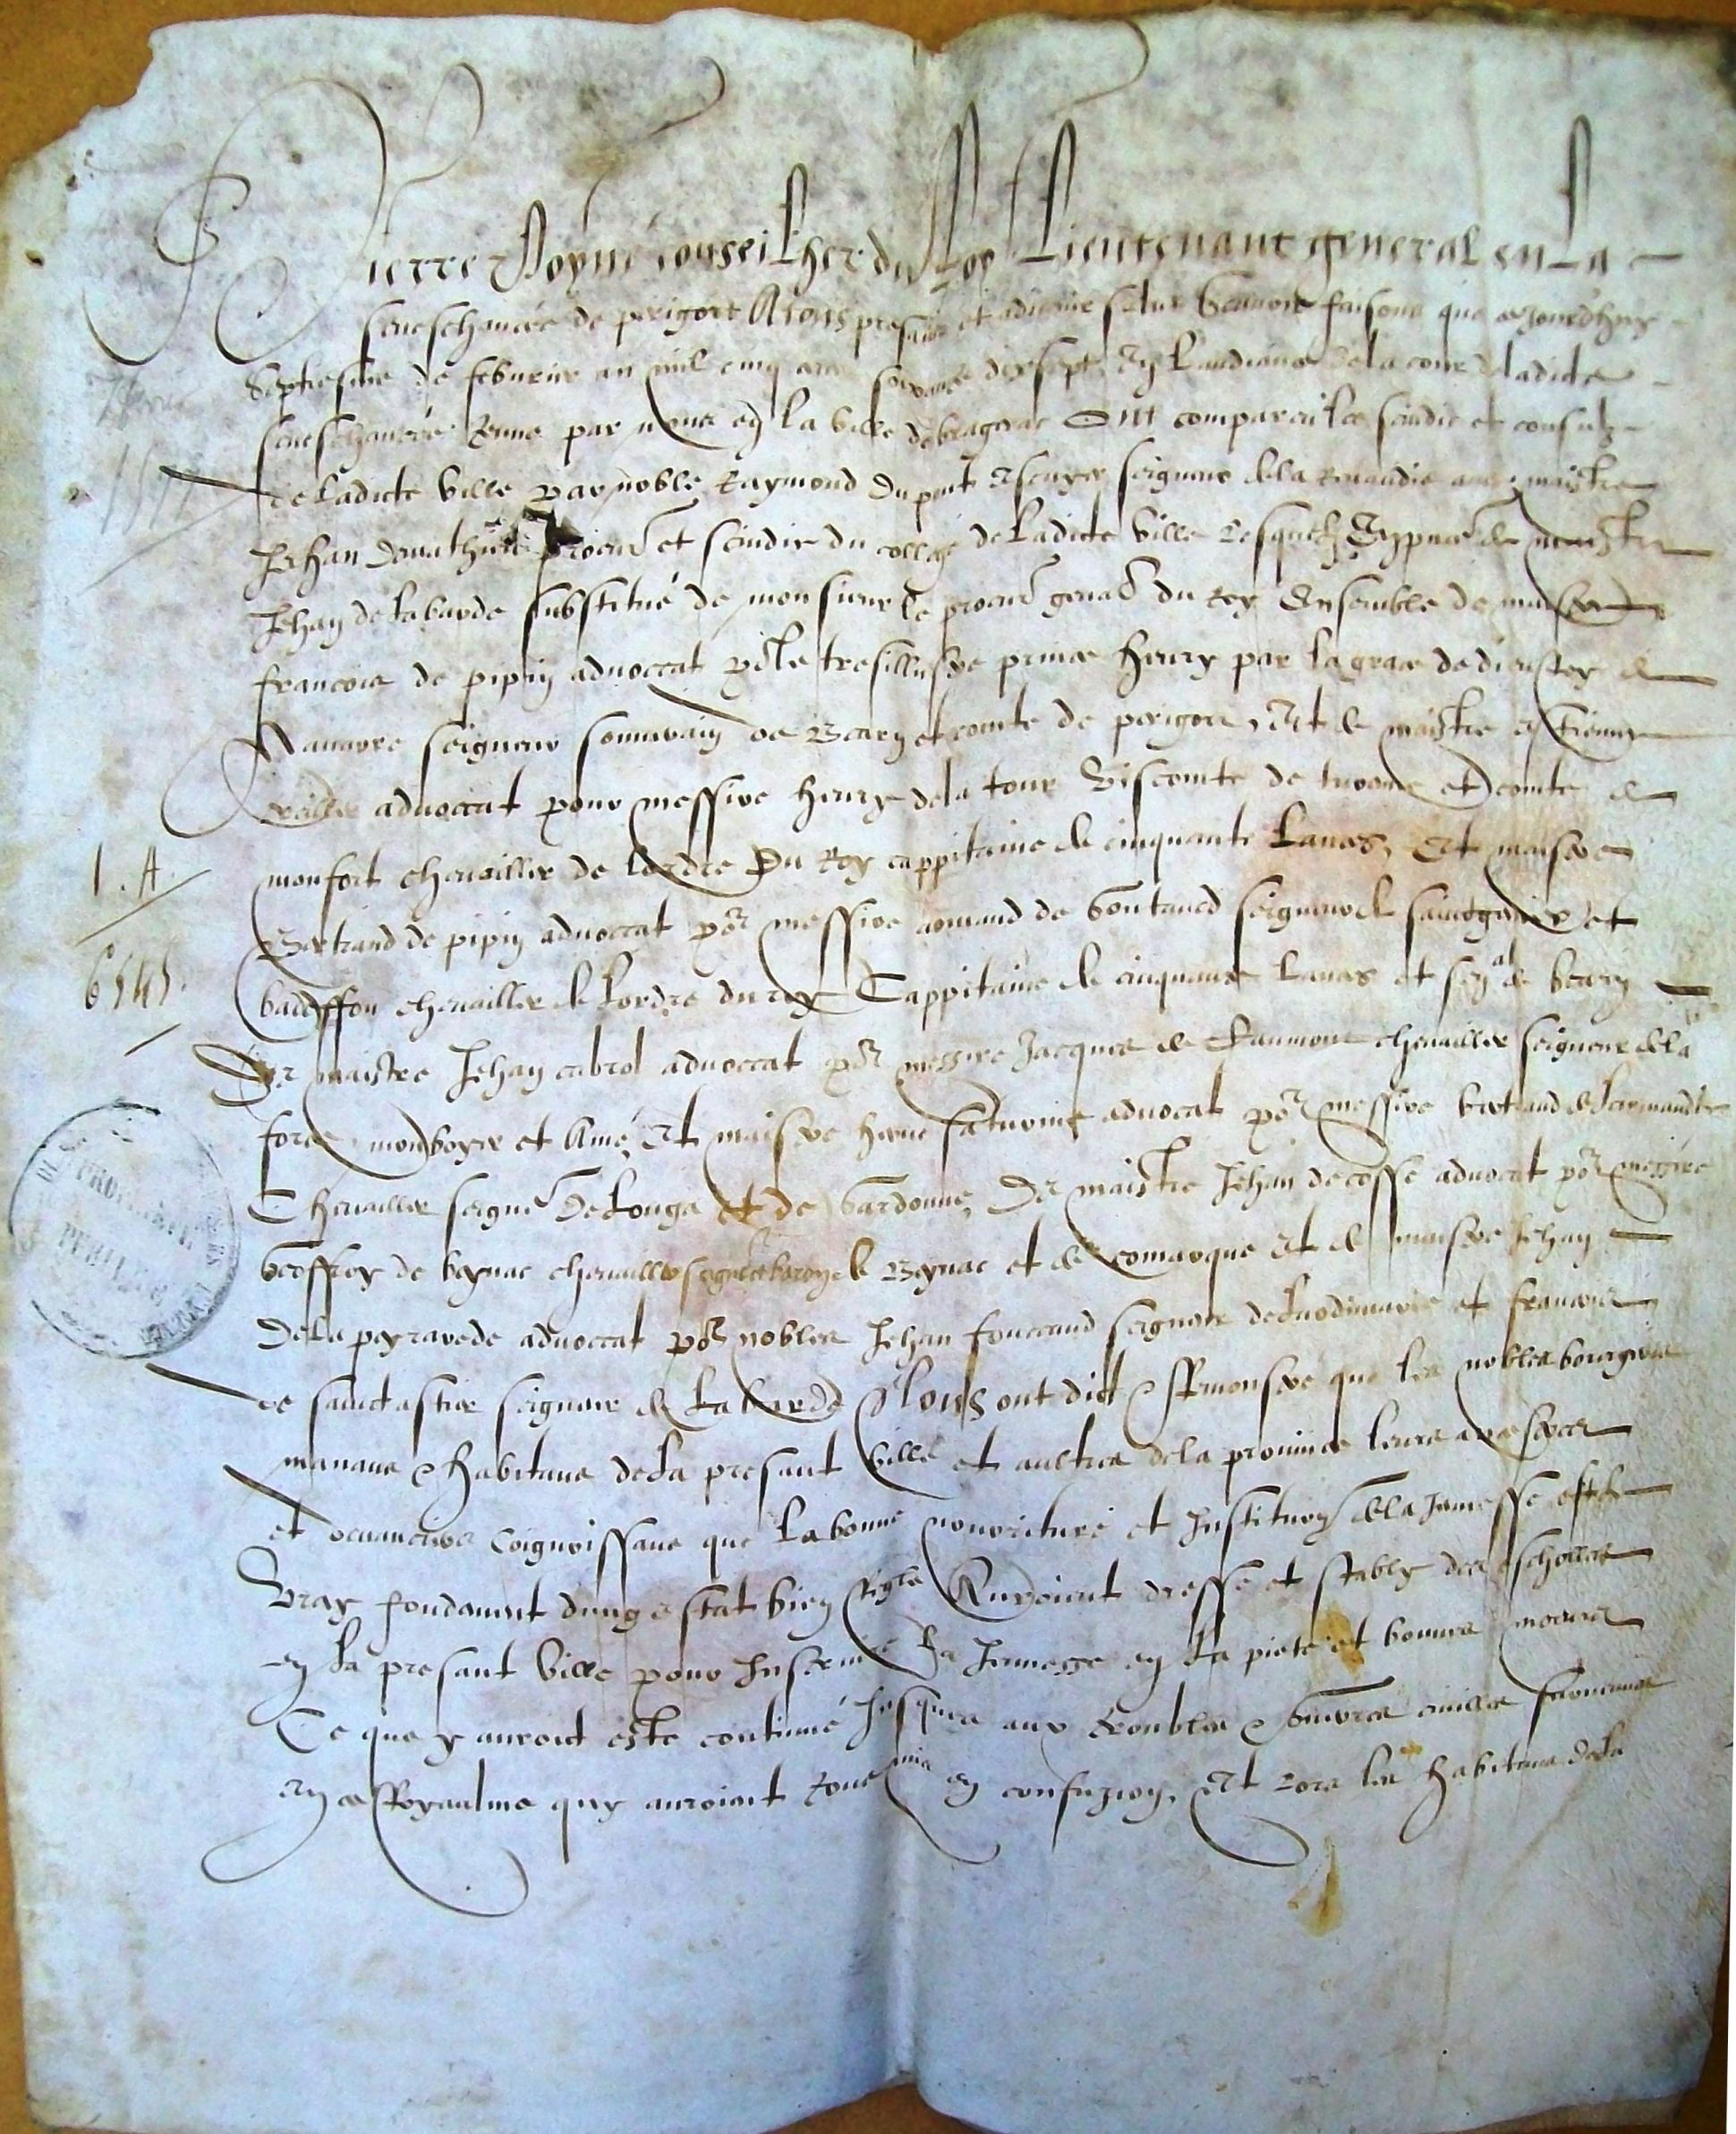 Pierre Poynet conseilher du Roy Lieutenant general en La
seneschaucée de perigort A tous presans et advenir salut Scavoir faisons que aujourdhuy
Septiesme de febvrier an mil cinq cens soixante dix sept En Laudiance de la cour de ladicte
seneschaucée tenue par nous en la ville de bragerac Ont comparu les scindic et consulz
de Ladicte ville par noble Raymond du pont escuyer seigneur de la Renaudie avec maistre
Jehan procur et scindic du college de Ladicte ville Lesquelz En pnce de maistre
Jehan de Labarde substitué de monsieur le procur genal du roy Ensemble de maistre
francois de pipin advoccat po le tresillustre prince henry par la grace de dieu Roy de
Navarre seigneur souverain de Bearn et comte de perigort, Et de maistre estienne
advoccat pour messire henry de la tour Viscomte de turenne et comte de
monfort chevaillier de lordre Du Roy cappitaine de cinquante Lances, Et maistre
Bertrand de pipin advoccat por messire armand de gontaud seigneur de sainct genies et
badeffou chevaillier de Lordre du roy Cappitaine de cinquante Lances et senal de bearn
Et maistre Jehan cabrol advoccat por messire Jacques de Caumont chevaillier seigneur de la
force monboyer et Et maistre saturnin advocat por messire bertrand de Larmandie
Chevaillier seigneur de Longa et de gardonne, Et maistre Jehan de cosse advocat por messire
Geoffroy de beynac chevaillier seigneur et baron de Beynac et de comarque Et de maistre Jehan
De la peyrarede advoccat por nobles Jehan foucaud seigneur de Lardimarie et francois
de sainct astier seigneur de La barde Tous ont dict & Remonstre que les nobles bourgeois
manans & habitans de La presant ville et aultres de la province leurs ancestres
et devanciers Coignoissans que La bonne nourriture et Institution de la Jeunesse est le
Vray fondament dung estat bien reglé Auroient dressé et stably des escholles
en La presant ville pour Instruire La Jeunesse en La pieté et bonnes moeurs
Ce que y auroit esté continué Jusques aux troubles & guerres civilles survenues
En ce Royaulme qui auroient tout mis en confuzion, Et Lors les habitans de La
1. A.